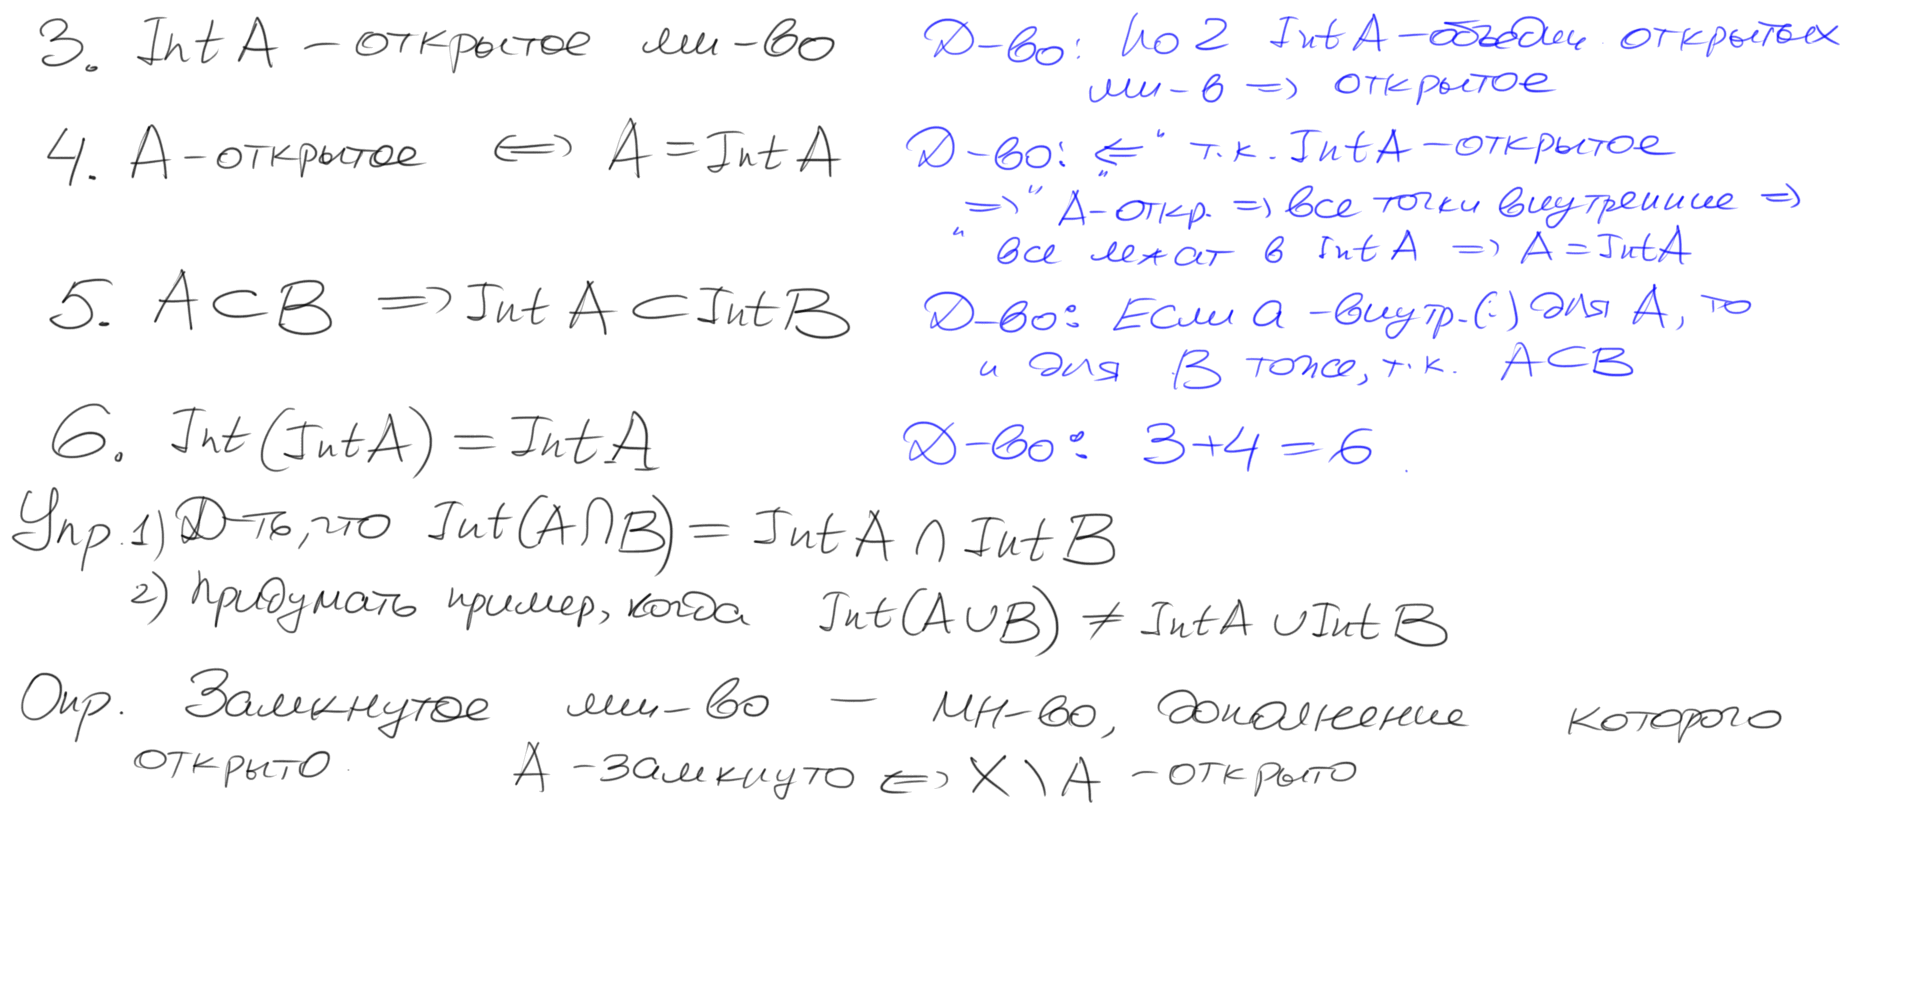 3. Int A – открытое мн-во
Д-во: По 2 Int A – объедин. открытых
мн-в => открытое
4. A – открытое <=> A = Int A
Д-во: "<=" т.к. Int A – открытое
"=>" A – откр. => все точки внутренние =>
все лежат в Int A => A = Int A
5. A ⊂ B => Int A ⊂ Int B
Д-во: Если a – внутр. (·) для A, то
и для B тоже, т.к. A ⊂ B
6. Int (Int A) = Int A
Д-во: 3+4 = 6
Упр. 1) Д-ть, что Int (A ∩ B) = Int A ∩ Int B
2) Придумать пример, когда Int (A ∪ B) ≠ Int A ∪ Int B
Опр. Замкнутое мн-во – мн-во, дополнение которого
открыто. A – замкнуто <=> X \ A – открыто